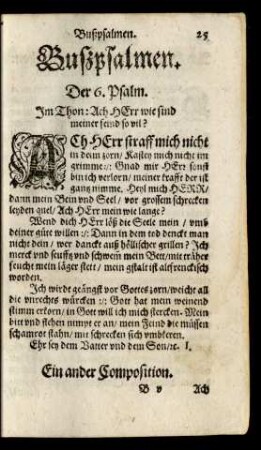 Bußpsalmen. 25
Bußpsalmen.
Der 6. Psalm.
Im Thon: Ach HErr wie sind
meiner feind so vil?
ACh HErr straff mich nicht
in deim zorn / Kastey mich nicht im
grimme :/: Gnad mir HErr sonst
bin ich verlorn / meiner krafft der ist
gantz nimme. Heyl mich HERR /
dann mein Bein vnd Seel / vor grossem schrecken
leyden quel / Ach HErr mein wie lange?
Wend dich HErr löß die Seele mein / vmb
deiner güte willen :/: Dann in dem tod denckt man
nicht dein / wer danckt auß höllischer grillen? Ich
merck vnd seufftz vnd schwem mein Bett / mit träher
feucht mein läger stett / mein gstalt ist altfrenckisch
worden.
Ich würde geängst vor Gottes zorn / weicht all
die vnrechts würcken :/: Gott hat mein weinend
stimm erkorn / in Gott will ich mich stercken. Mein
bitt vnd flehen nimpt er an / mein Feind die müssen
schamrot stahn / mit schrecken sich vmbkeren.
Ehr sey dem Vatter vnd dem Son / ꝛc. 1.
Ein ander Composition.
B v Ach